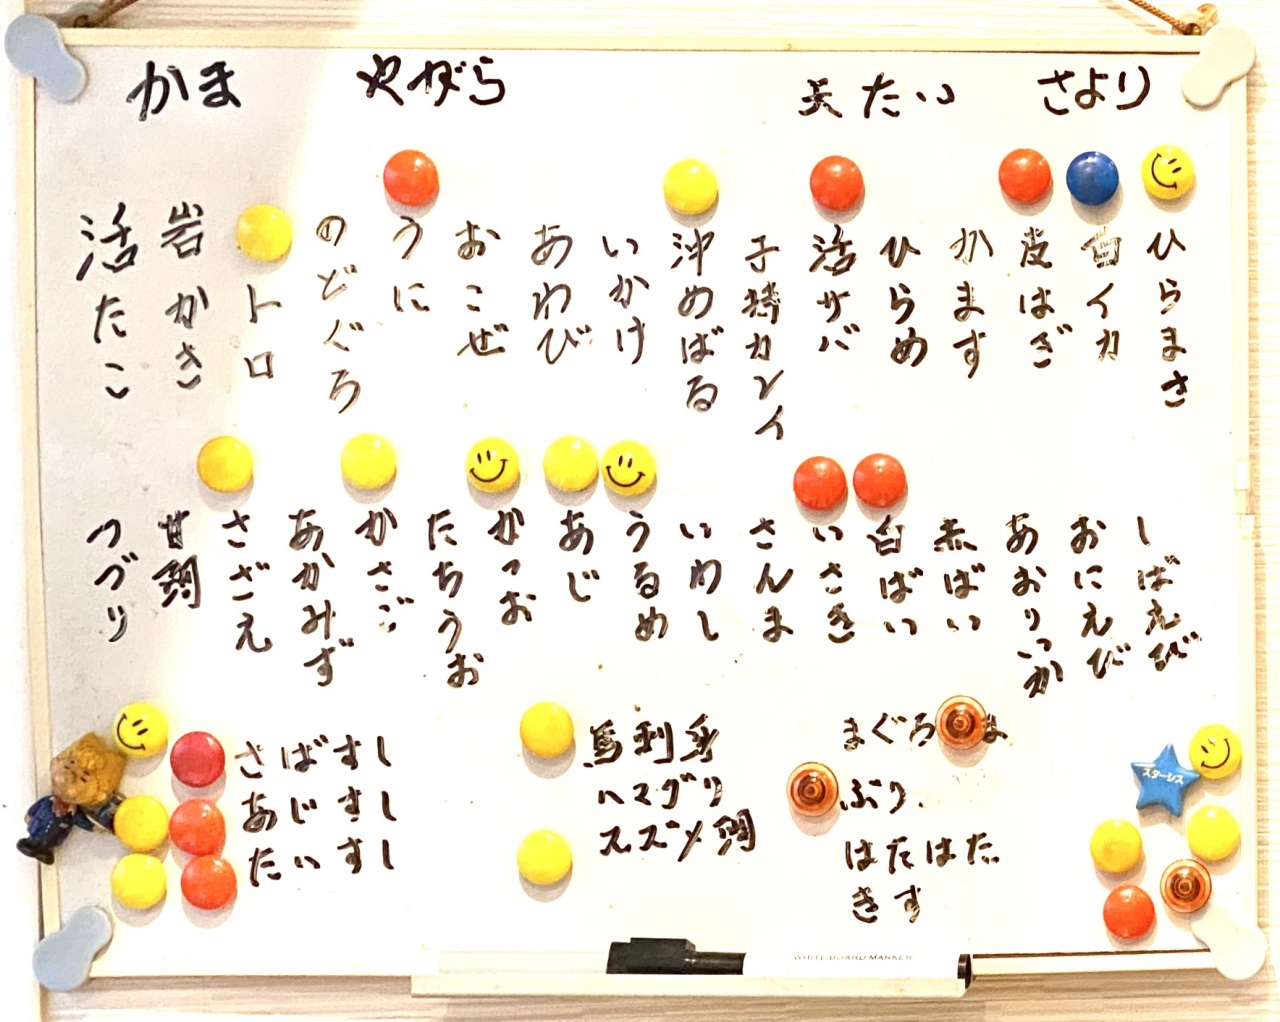 かま
やがら
天たい
さより
ひらまさ
白イカ
皮はぎ
かます
ひらめ
活サバ
子持カレイ
沖めばる
いかけ
あわび
おこぜ
うに
のどぐろ
トロ
岩かき
活たこ
しばえび
おにえび
あおりいか
赤ばい
白ばい
いさき
さんま
いわし
うるめ
あじ
かつお
たちうお
かさご
あかみず
さざえ
甘鯛
つづり
さばすし
あじすし
たいすし
馬刺身
ハマグリ
スズメ鯛
まぐろ ま
ぶり
はたはた
きす
スターシス
WHITE BOARD MARKER